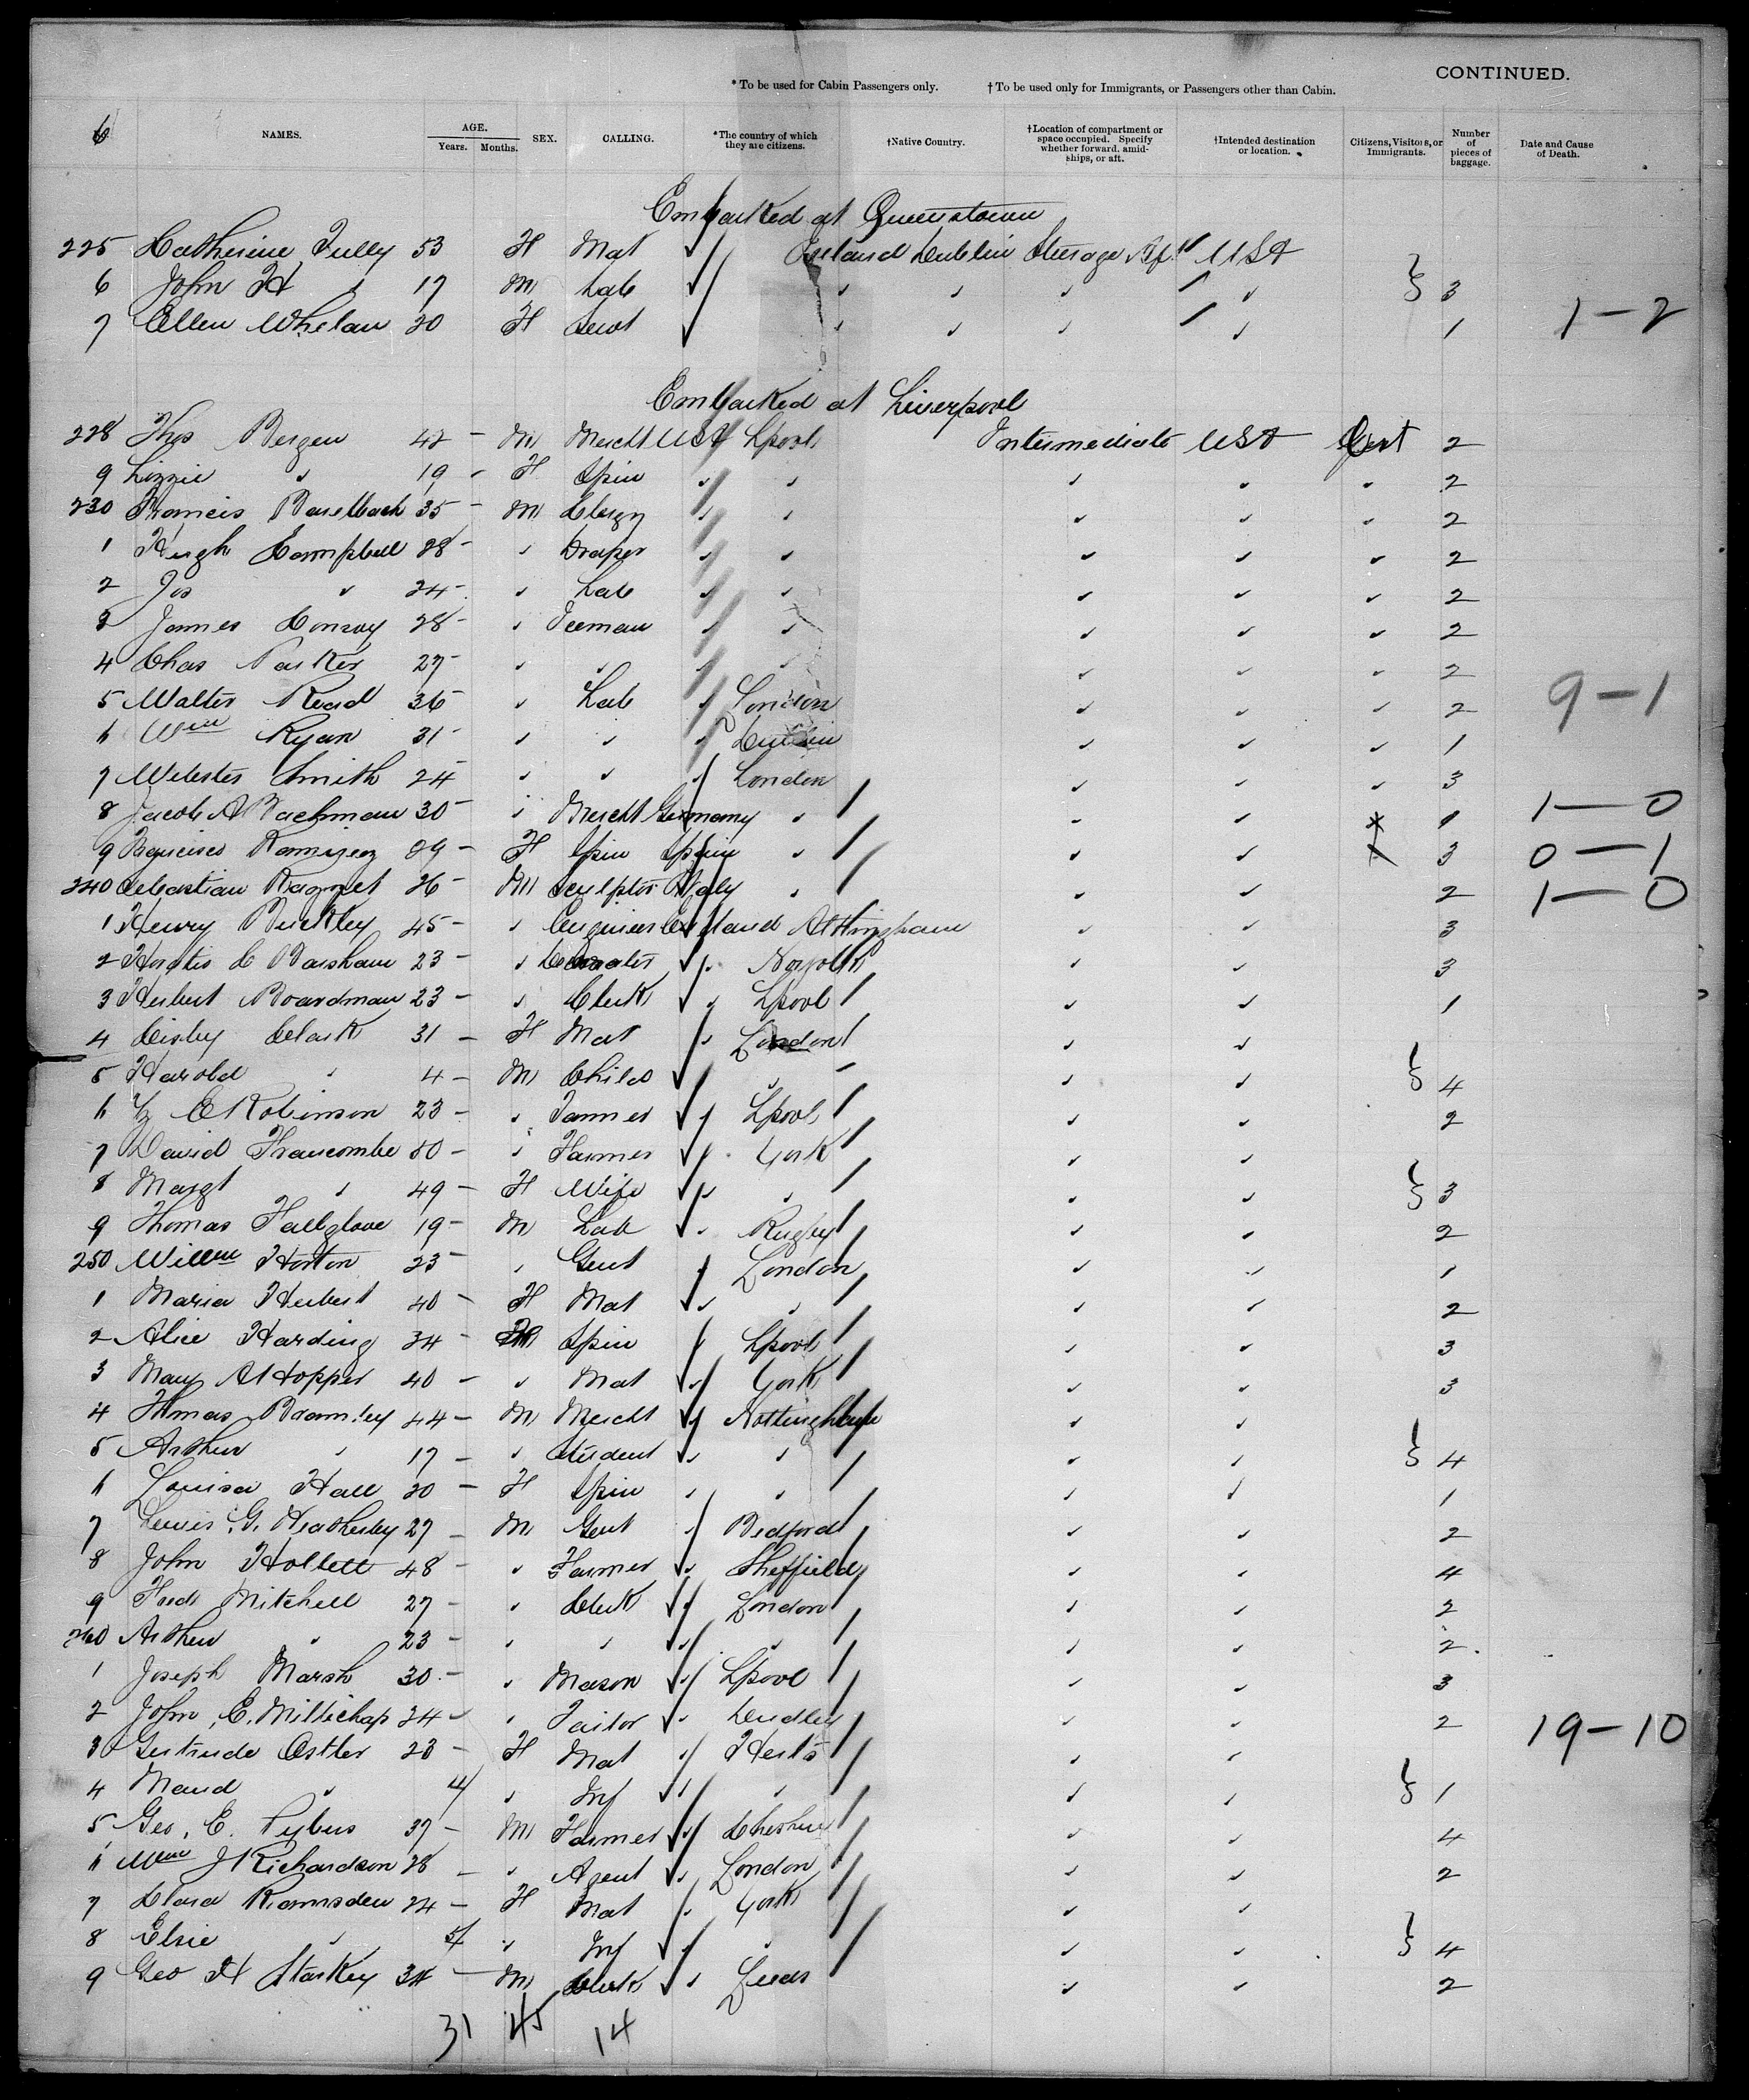 CONTINUED.
* To be used for Cabin Passengers only. † To be used only for Immigrants, or Passengers other than Cabin.
6 NAMES. AGE. Years. Months. SEX. CALLING. *The country of which they are citizens. †Native Country. †Location of compartment or space occupied. Specify whether forward, amidships, or aft. †Intended destination or location. Citizens, Visitors, or Immigrants. Number of pieces of baggage. Date and Cause of Death.
Embarked at Queenstown
225 Catherine Tully 53 F Mat Ireland Dublin Steerage Aft USA
6 John H " 17 M Lab " " " " 3
7 Ellen Whelan 20 F Servt " " " " 1 1-2
Embarked at Liverpool
228 Thos Bergen 42 - M Mercht USA Lpool Intermediate USA 2
9 Lizzie " 19 - F Spin " " " " " 2
230 Francis Baselbach 35 - M Clergy " " " " " 2
1 Hugh Campbell 28 - " Draper " " " " " 2
2 Jos " 24 - " Lab " " " " " 2
3 James Conroy 28 - " " " " " " 2
4 Chas Parker 27 - " " " " " " " 2
5 Walter Read 36 - " Lab " London " " " 2 9-1
6 Wm Ryan 31 - " " " Dublin " " " 1
7 Webster Smith 24 - " " " London " " " 3
8 Jacob A Bachman 30 - " Mercht Germany " " " 1 1-0
9 Ramirez 29 - F Spin Spain " " " 3 0-1
240 Sebastian 26 - M Sculptor Italy " " " 2 1-0
1 Henry Buckley 45 - " Engineer England Altringham " " 3
2 C Barsham 23 - " " Norfolk " " 3
3 Herbert Boardman 23 - " Clerk " Lpool " " 1
4 Clark 31 - F Mat " London " "
5 Harold " 4 - M Child " " " 4
6 E Robinson 23 - " " Lpool " " 2
7 David Francombe 50 - " Farmer " York " "
8 Margt " 49 - F Wife " " " " 3
9 Thomas 19 - M Lab " Rugby " " 2
250 Willm Horton 23 - " Gent " London " " 1
1 Maria Herbert 40 - F Mat " " " " 2
2 Alice Harding 34 - Spin " Lpool " " 3
3 Mary A Hopper 40 - " Mat " York " " 3
4 Thomas Bramley 44 - M Mercht " Nottingham " "
5 Arthur " 17 - " Student " " " " 4
6 Louisa Hall 20 - F Spin " " " " 1
7 Lewis G. Heatherley 27 - M Gent " Bedford " " 2
8 John Hollett 48 - " Farmer " Sheffield " " 4
9 Fredk Mitchell 27 - " Clerk " London " " 2
260 Arthur " 23 - " " " " " " 2
1 Joseph Marsh 30 - " Mason " Lpool " " 3
2 John E. Millichap 24 - " Tailor " Dudley " " 2 19-10
3 Gertrude Ostler 23 - F Mat " Herts " "
4 Maud " " Inf " " " " 1
5 Geo. E. Pybus 37 - M Farmer " Cheshire " " 4
6 Wm J Richardson 28 - " Agent " London " " 2
7 Clara Ramsden 24 - F Mat " York " "
8 Elsie " " Inf " " " " 4
9 Geo H Starkey 34 - M Clerk " Leeds " " 2
31 45 14